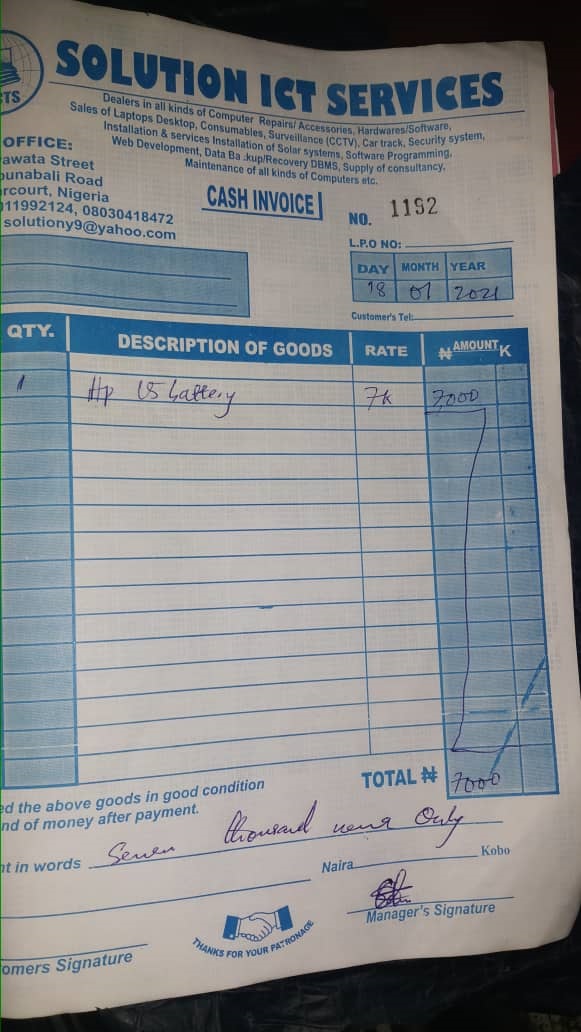 CTS
SOLUTION ICT SERVICES
Dealers in all kinds of Computer Repairs/ Accessories, Hardwares/Software,
Sales of Laptops Desktop, Consumables, Surveillance (CCTV), Car track, Security system,
Installation & services Installation of Solar systems, Software Programming,
Web Development, Data Ba .kup/Recovery DBMS, Supply of consultancy,
Maintenance of all kinds of Computers etc.
OFFICE:
awata Street
ounabali Road
rcourt, Nigeria
011992124, 08030418472
solutiony9@yahoo.com
CASH INVOICE
NO. 1192
L.P.O NO:
DAY MONTH YEAR
18 01 2021
Customer's Tel:
QTY. DESCRIPTION OF GOODS RATE ₦ AMOUNT K
1 Hp battery 7k 7000
TOTAL ₦ 7000
ed the above goods in good condition
nd of money after payment.
nt in words Seven thousand Only
Naira Kobo
Manager's Signature
THANKS FOR YOUR PATRONAGE
omers Signature